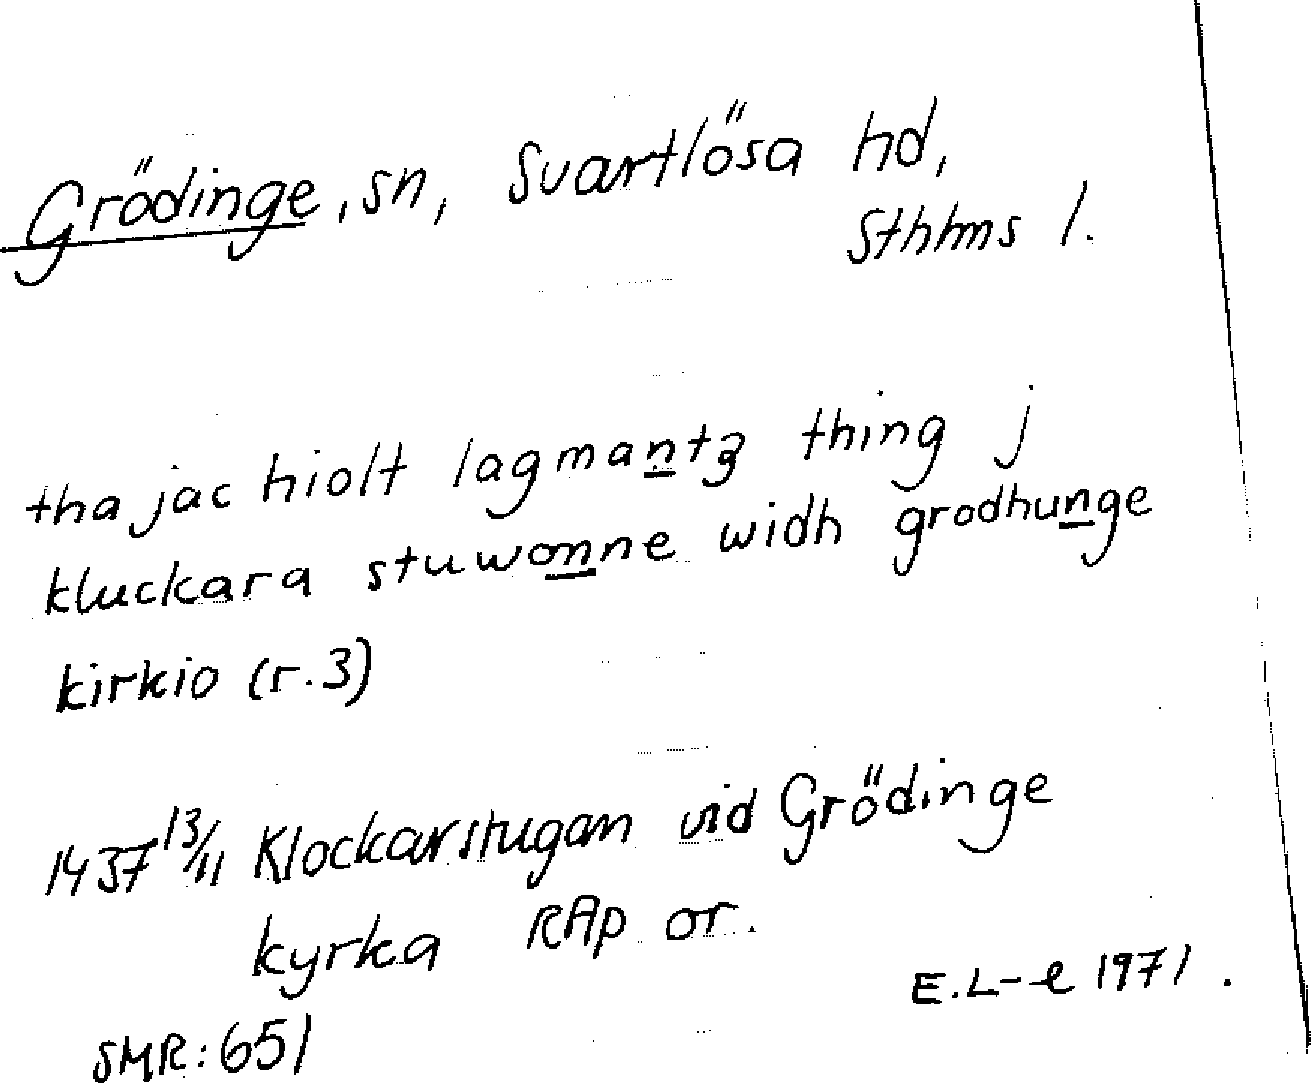 Grödinge, sn, Svartlösa hd,
Sthlms l.
tha jac hiolt lagmantz thing j
kluckara stuwonne widh grodhunge
kirkio (r.3)
1437 13/11 Klockarstugan vid Grödinge
kyrka RAp or.
E.L-e 1971.
SMR: 651